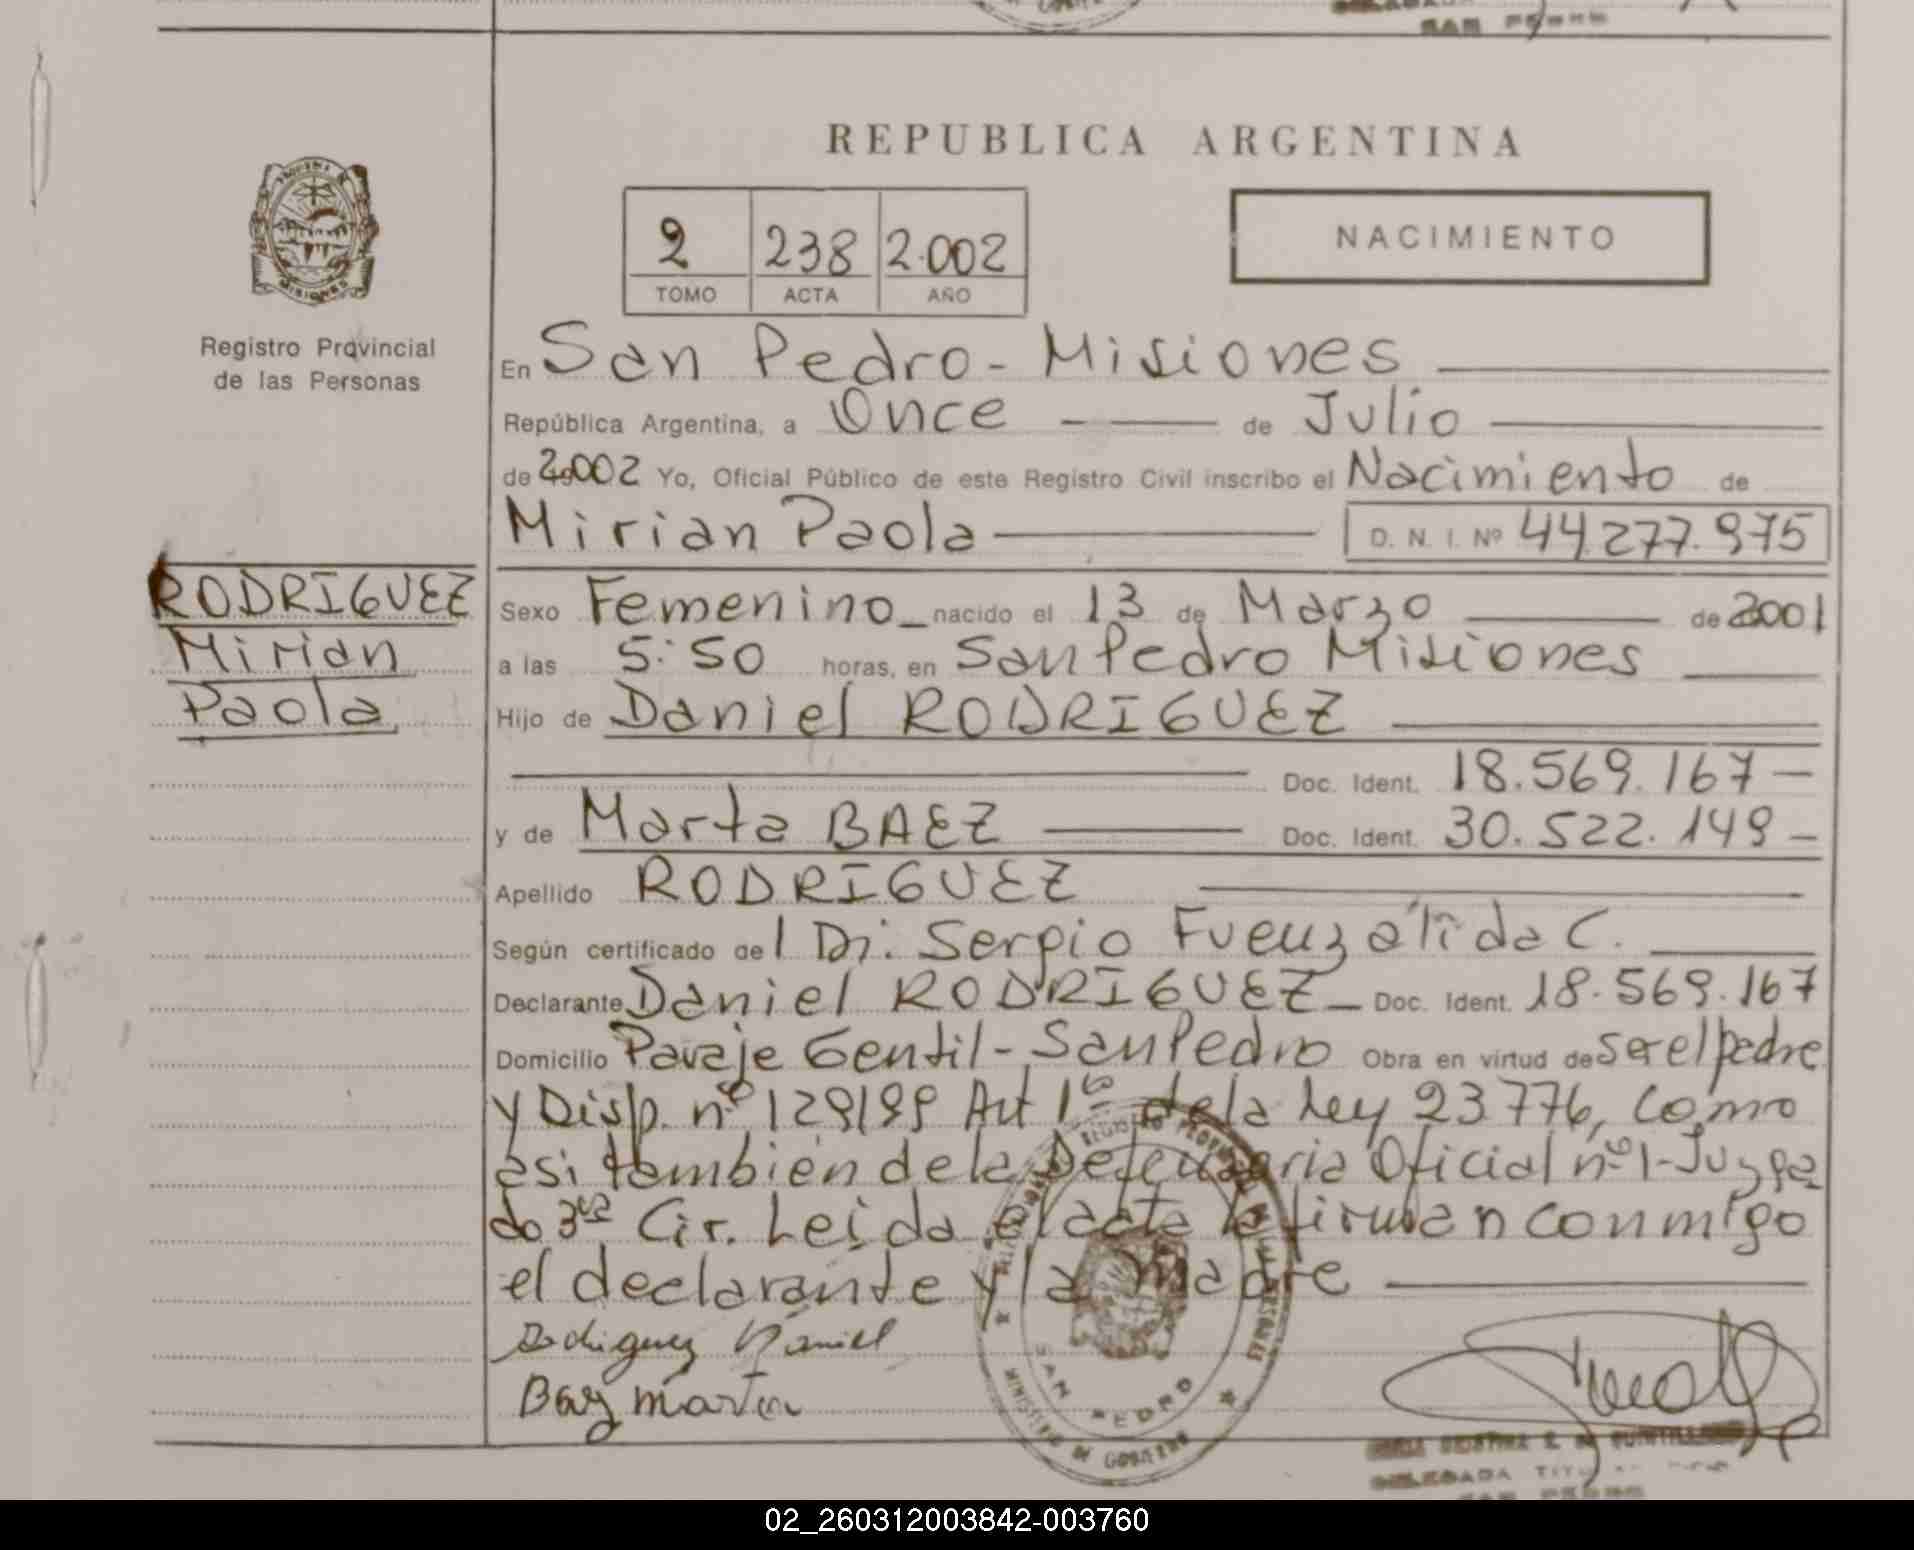 REPUBLICA ARGENTINA
2 238 2.002
TOMO ACTA AÑO
NACIMIENTO
Registro Provincial
de las Personas
En San Pedro - Misiones
República Argentina, a Once de Julio
de 2.002 Yo, Oficial Público de este Registro Civil inscribo el Nacimiento de
Mirian Paola D. N. I. Nº 44.277.975
RODRIGUEZ
Mirian
Paola
Sexo Femenino nacido el 13 de Marzo de 2001
a las 5:50 horas, en San Pedro Misiones
Hijo de Daniel RODRIGUEZ
Doc. Ident. 18.569.167
y de Marta BAEZ Doc. Ident. 30.522.149
Apellido RODRIGUEZ
Según certificado de l Dr. Sergio Fuenzálida C.
Declarante Daniel RODRIGUEZ Doc. Ident. 18.569.167
Domicilio Paraje Gentil - San Pedro Obra en virtud de ser el padre
y Disp. nº 129/99 Art 1º de la Ley 23776, como
asi tambien de la Defensoria Oficial nº 1 - Juzga
do 3ra Cir. Leida el acta la firman conmigo
el declarante y la Madre
Rodriguez Daniel
Baez marta
REGISTRO PROVINCIAL DE LAS PERSONAS
SAN PEDRO
MINISTERIO DE GOBIERNO
SAN PEDRO
02_260312003842-003760